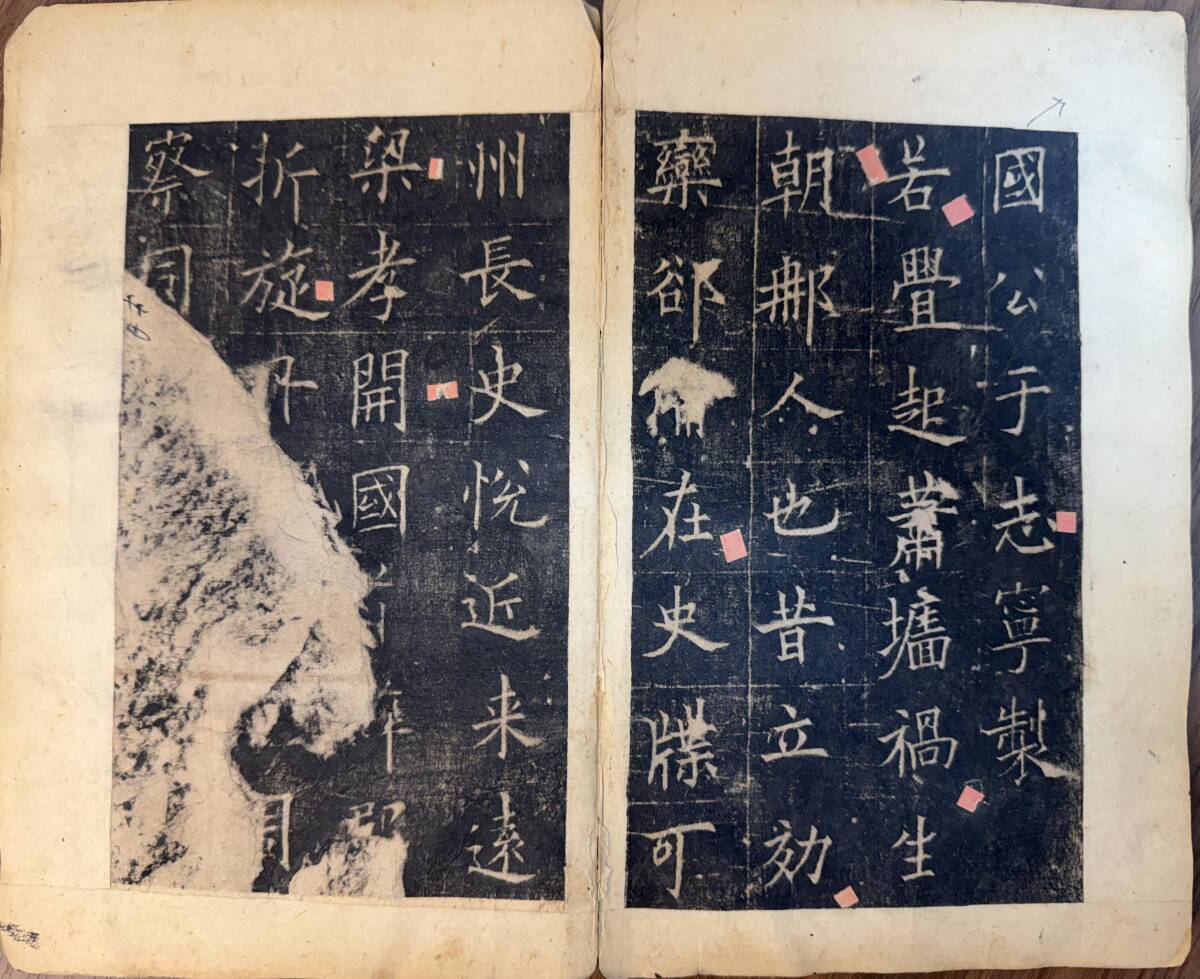 國公于志寧製
若舋起蕭墻禍生
朝那人也昔立効
欒郤在史牒可
州長史悅近来遠
梁孝開國
折旋
察同